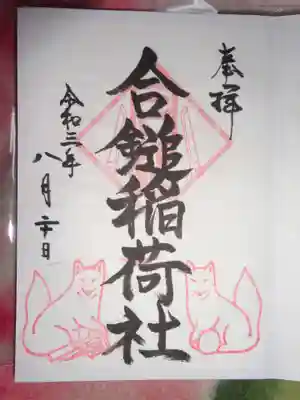 奉拝
合鎚稲荷社
令和三年
八月二十日